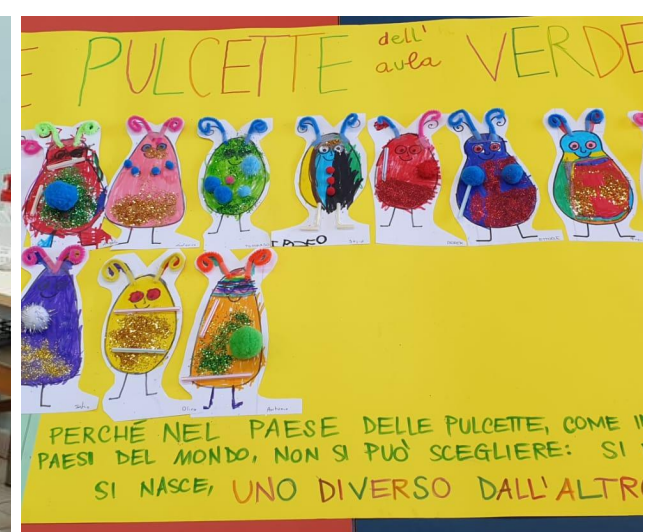 E PULCETTE dell' aula VERDE
TADEO
PERCHÉ NEL PAESE DELLE PULCETTE, COME I
PAESI DEL MONDO, NON SI PUÒ SCEGLIERE: SI
SI NASCE, UNO DIVERSO DALL'ALTRO